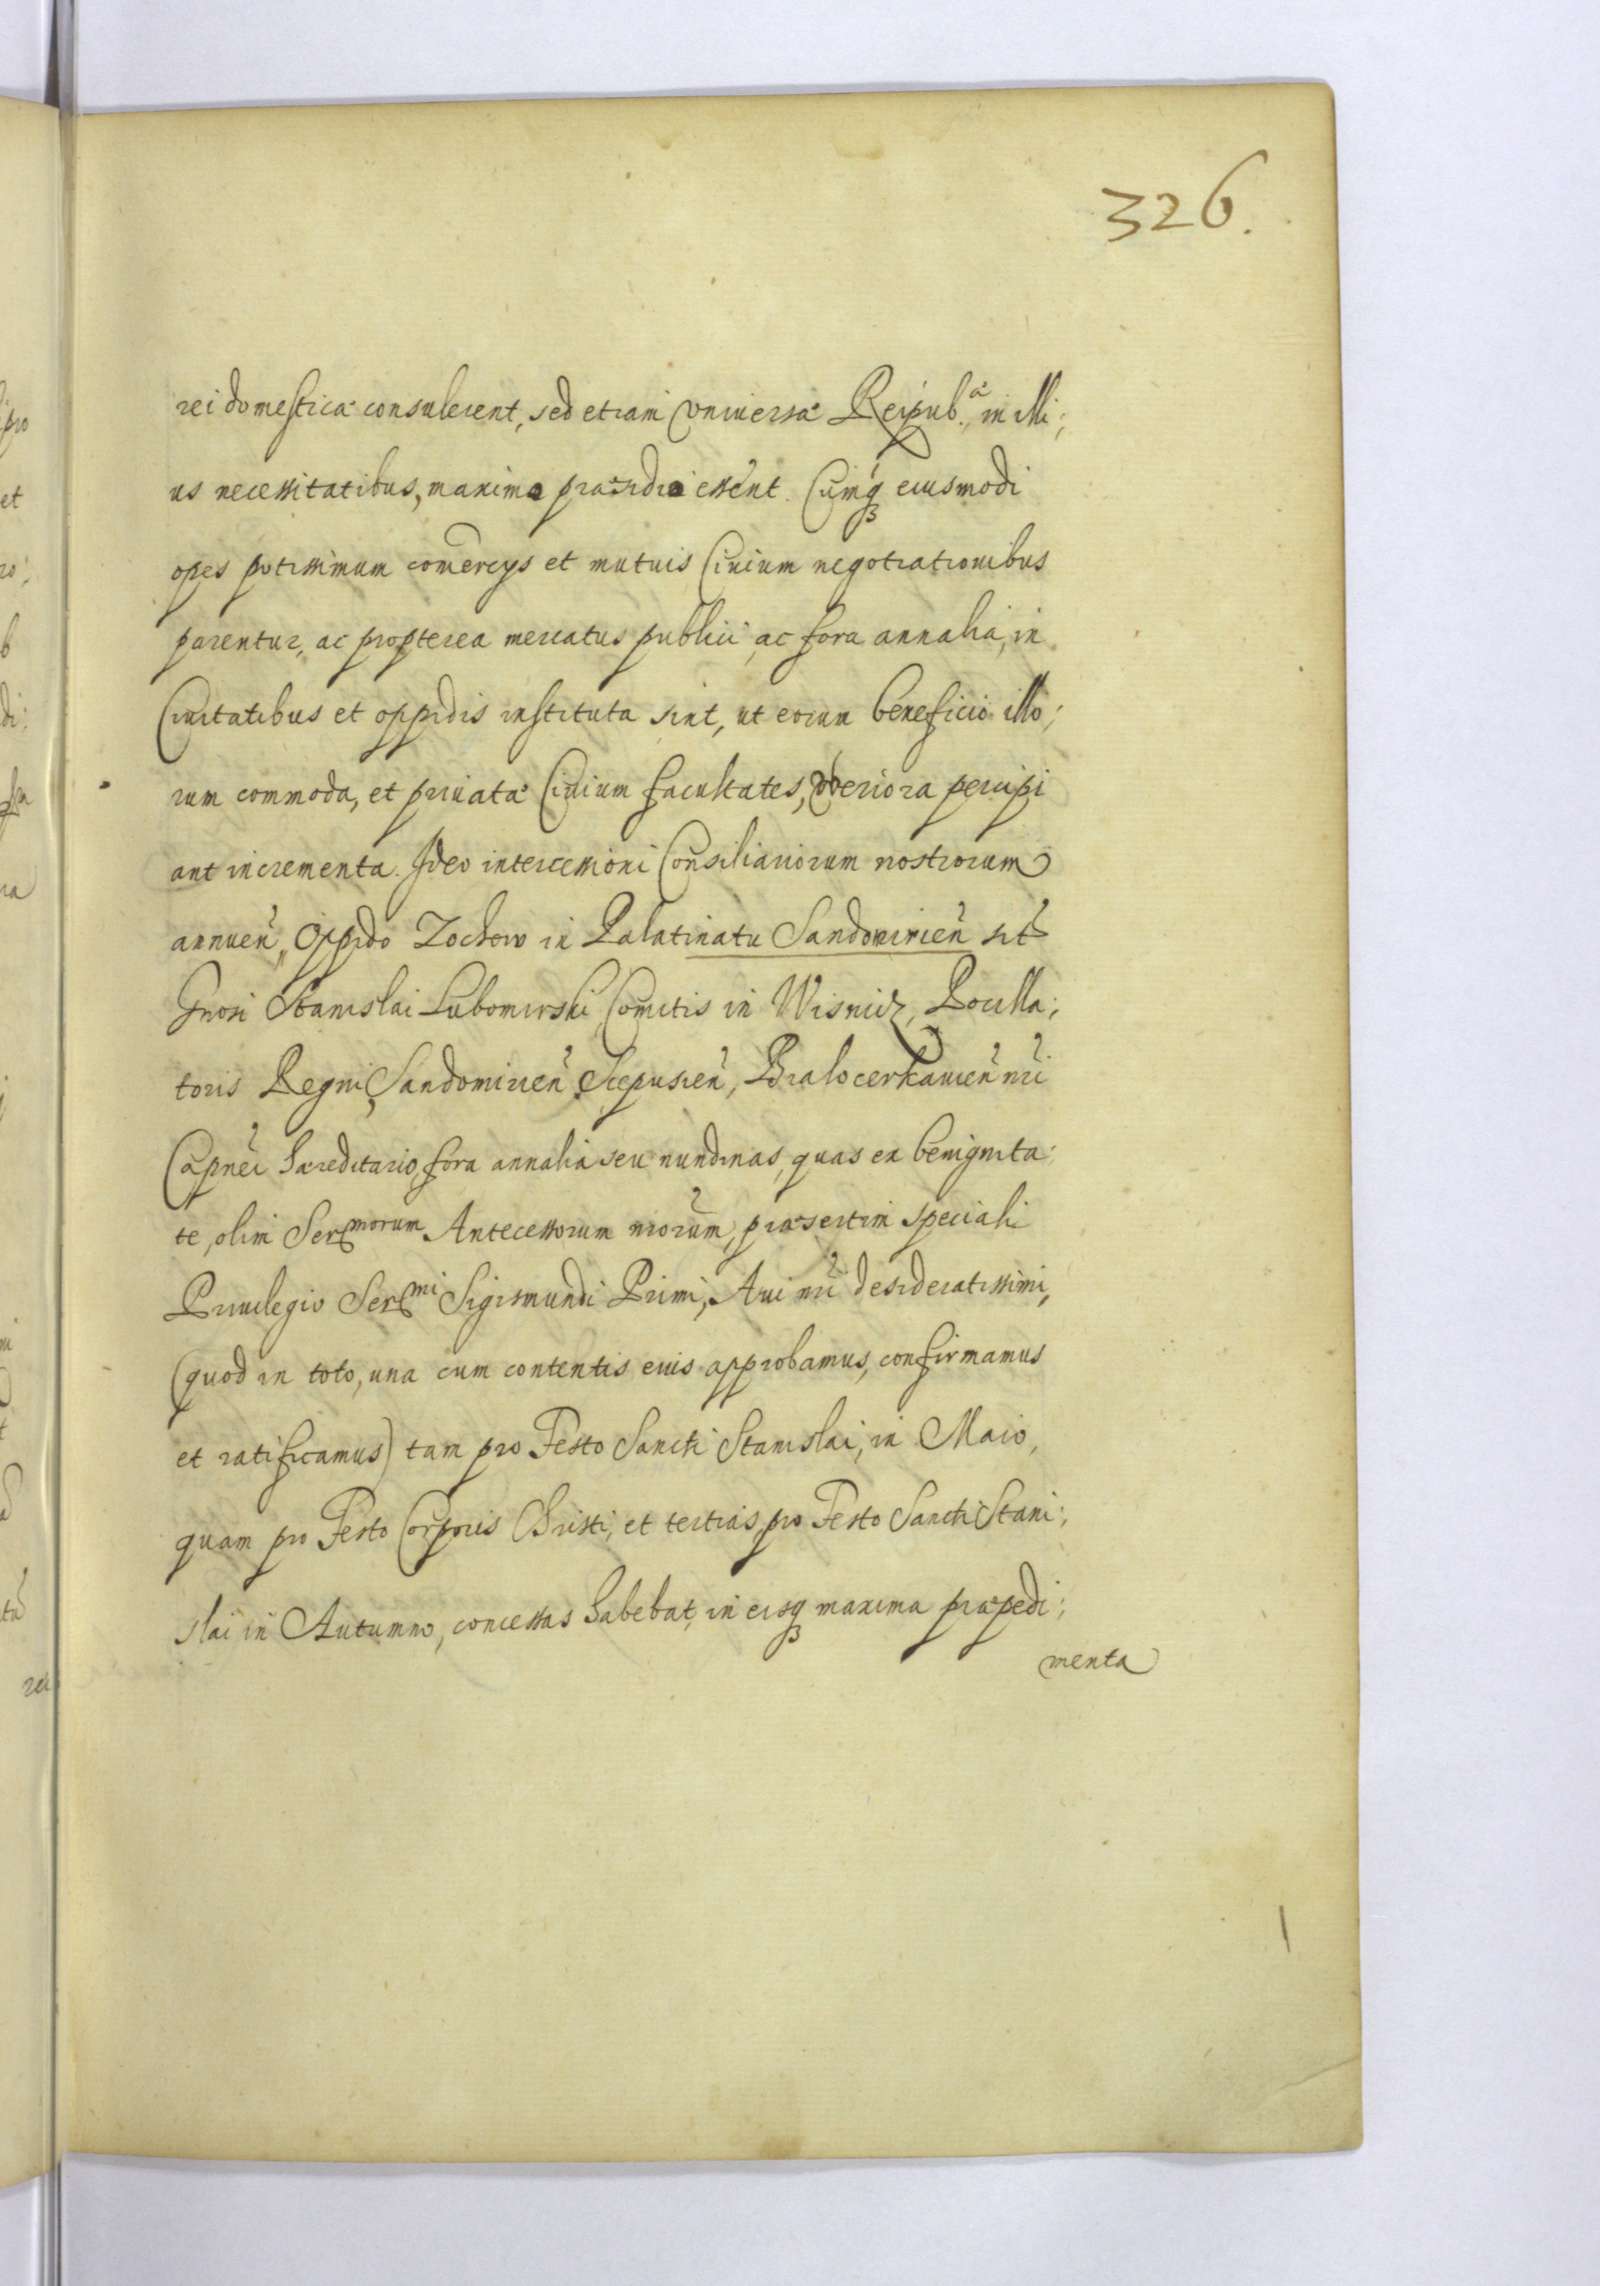 326.
rei domesticæ consulerent, sed etiam Vniversæ Reipub.æ in illi;
us necessitatibus, maximo præsidio essent. Cumq3 eiusmodi
opes potissimum comercys et mutuis Civium negotiationibus
parentur, ac propterea mercatus publici, ac fora annalia, in
Civitatibus et oppidis instituta sint, ut eorum beneficio illo;
rum commoda, et privatæ Civium facultates, vberiora percipi
ant incrementa. Ideo intercessioni Consiliariorum nostrorum
annuen, Oppido Zochow in Palatinatu Sandomirien sit
Gnosi Stanislai Lubomirski Comitis in Wisnicz, Pocilla;
toris Regni, Sandomirien Scepusien, Bialocerkavien nri
Capnei hæreditario, fora annalia seu nundinas, quas ex benignita:
te, olim Sermorum Antecessorum nrorum, præsertim speciali
Privilegio Sermi Sigismundi Primi, Avi nri desideratissimi,
(quod in toto, una cum contentis eius approbamus, confirmamus
et ratificamus) tam pro Festo Sancti Stanislai, in Maio,
quam pro Festo Corporis Christi, et tertias pro Festo Sancti Stani;
slai in Autumno, concessas habebat, in eisq3 maxima præpedi;
menta